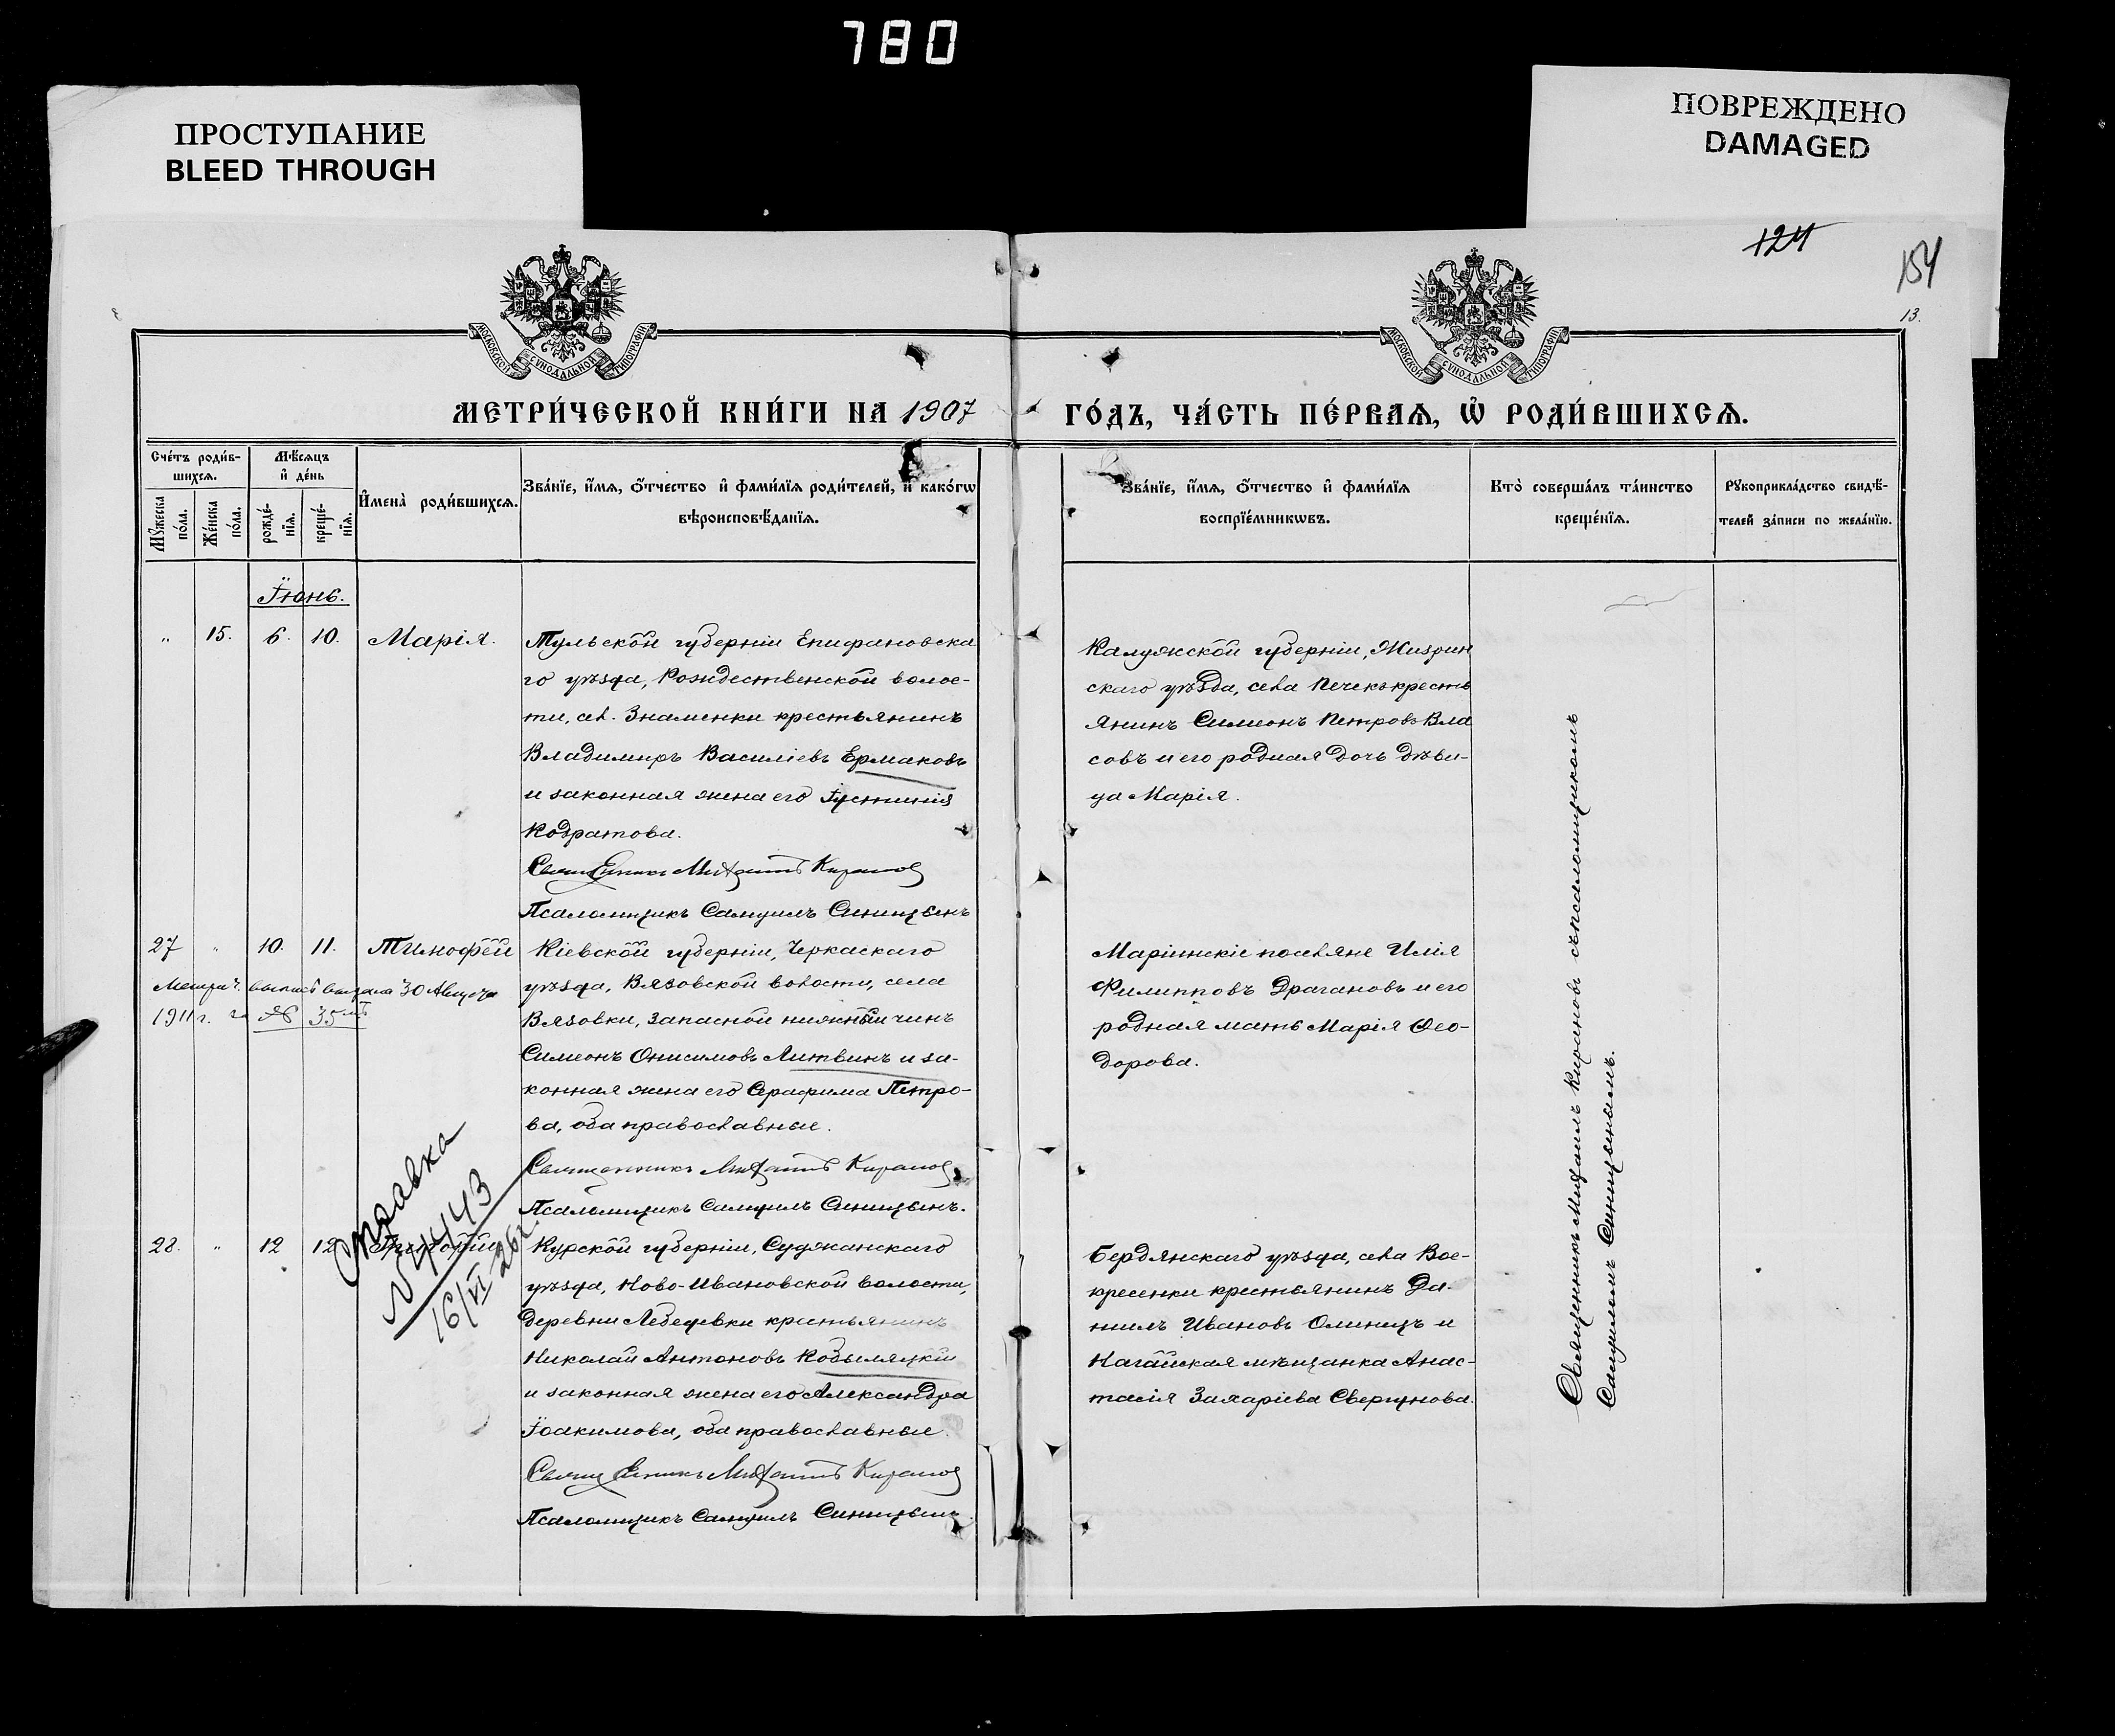 780
ПРОСТУПАНИЕ
BLEED THROUGH
ПОВРЕЖДЕНО
DAMAGED
124
154
13.
МОСКОВСКОЙ СѴНОДАЛЬНОЙ ТИПОГРАФІИ
МОСКОВСКОЙ СѴНОДАЛЬНОЙ ТИПОГРАФІИ
МЕТРИ́ЧЕСКОЙ КНИ́ГИ НА 1907
ГО́ДЪ, ЧА́СТЬ ПЕ́РВАѦ, Ѡ҆ РОДИ́ВШИХСѦ.
Сче́тъ роди́в-
шихсѧ.
Мꙋ́жеска по́ла.
Же́нска по́ла.
Мѣ́сѧцъ
и҆ де́нь
рожде́-
нїѧ.
креще́-
нїѧ.
И҆мена̀ роди́вшихсѧ.
Зва́нїе, и҆́мѧ, ѻ҆́тчество и҆ фами́лїѧ роди́телей, и҆ како́гѡ
вѣроисповѣ́данїѧ.
Зва́нїе, и҆́мѧ, ѻ҆́тчество и҆ фами́лїѧ
воспрїе́мникѡвъ.
Кто̀ соверша́лъ та́инство
креще́нїѧ.
Рꙋкоприкла́дство свидѣ́-
телей за́писи по жела́нїю.
Іюнь.
" 15. 6. 10. Марія.
Тульской губерніи Епифановска
го уѣзда, Рождественской волос-
ти, сел. Знаменки крестьянинъ
Владимиръ Василіевъ Ермаковъ
и законная жена его Іустинія
Кодратова.
Священникъ Михаилъ Кирановъ
Псаломщикъ Самуилъ Синицынъ
Калужской губерніи, Жиздрин
скаго уѣзда, села кресть
янинъ Симеонъ Петровъ Вла
совъ и его родная дочь дѣви-
ца Марія.
27 " 10. 11. Тимофей
Метрич. выпись выдана 30 Августа
1911 г. за № 35
Кіевской губерніи, Черкаскаго
уѣзда, Вязовской волости, села
Вязовки, запасной нижный чинъ
Симеонъ Онисимовъ Литвинъ и за-
конная жена его Серафима Петро-
ва, оба православные.
Священникъ Михаилъ Кирановъ
Псаломщикъ Самуилъ Синицынъ.
Маріинскіе поселяне Илія
Филипповъ Драгановъ и его
родная мать Марія Ѳео-
дорова.
Справка
N 4443
16/VI 26г.
28. " 12 12 Григорій
Курской губерніи, Суджанскаго
уѣзда, Ново-Ивановской волости,
деревни Лебедевки крестьянинъ
Николай Антоновъ Кобыляцкій
и законная жена его Александра
Іоакимова, оба православные.
Священникъ Михаилъ Кирановъ
Псаломщикъ Самуилъ Синицынъ.
Бердянскаго уѣзда, села Вос-
кресенки крестьянинъ Да-
ниилъ Ивановъ Олиницъ и
Нагайская мѣщанка Анас-
тасія Захаріева Свергунова.
Священникъ Михаилъ Кирановъ съ псаломщикомъ
Самуиломъ Синицынымъ.